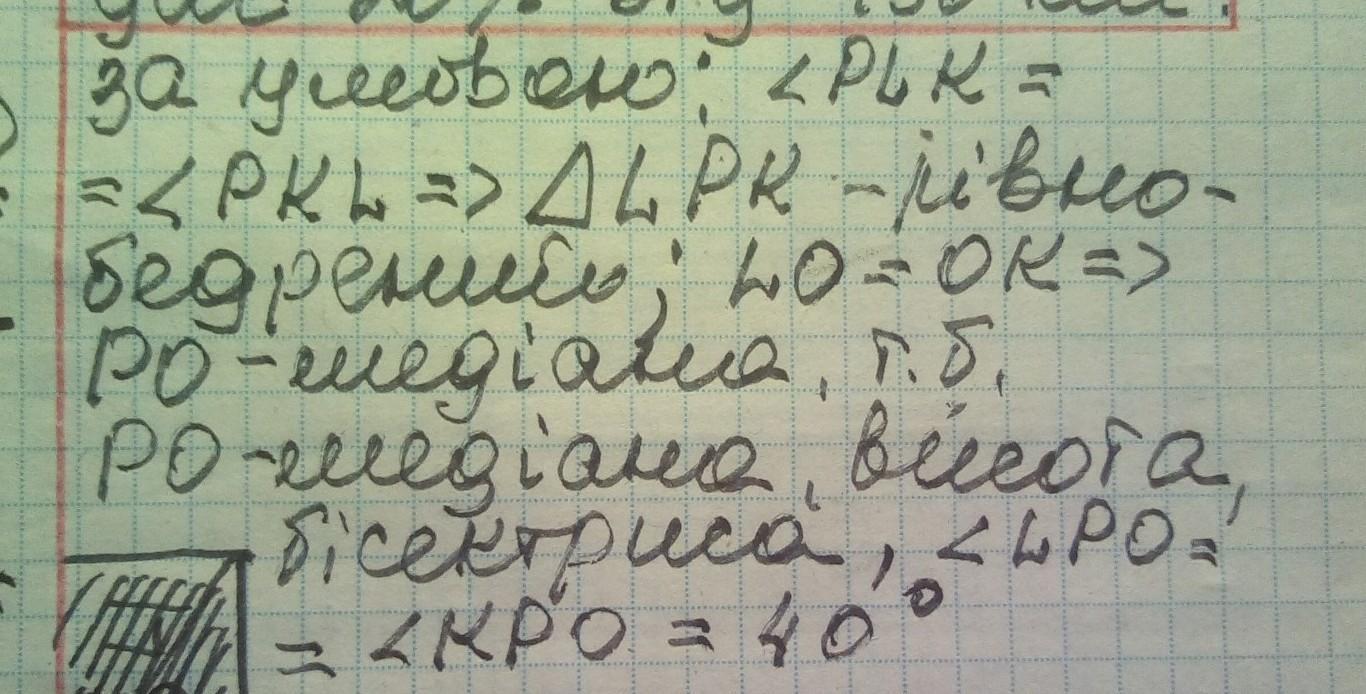 за умовою: <PLK =
= <PKL => △LPK - рівно-
бедрений; LO = OK =>
PO - медіана, т.б.
PO - медіана, висота,
бісектриса, <LPO =
= <KPO = 40°